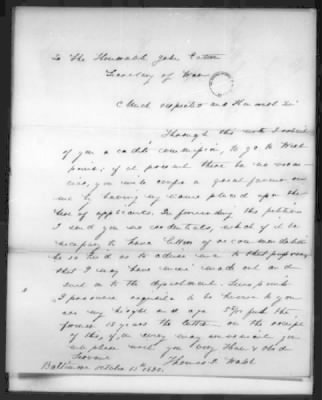 To The Honorable John Eaton
Secretary of War
Much respected and Humbel Sir
Through this note I solicit
of you a cadets commission, to go to West
point; if at present there be no vacan-
cies, you will confer a great favour on
me by having my name placed upon the
list of applicants. In forwarding this petition
I send you no credentials, which if it be
necessary to have letters of recommendation
be so kind as to advise me to that purpose,
that I may have such made out and
sent on to the department. Two points
I presume requisite to be known to you
are my height and age 5 feet the
former 18 years the latter. on the receipt
of this, if, in every way convenient you
will please write your very Hum & Obed
Servant
Thomas P. Walsh
Baltimore October 13th 1830.